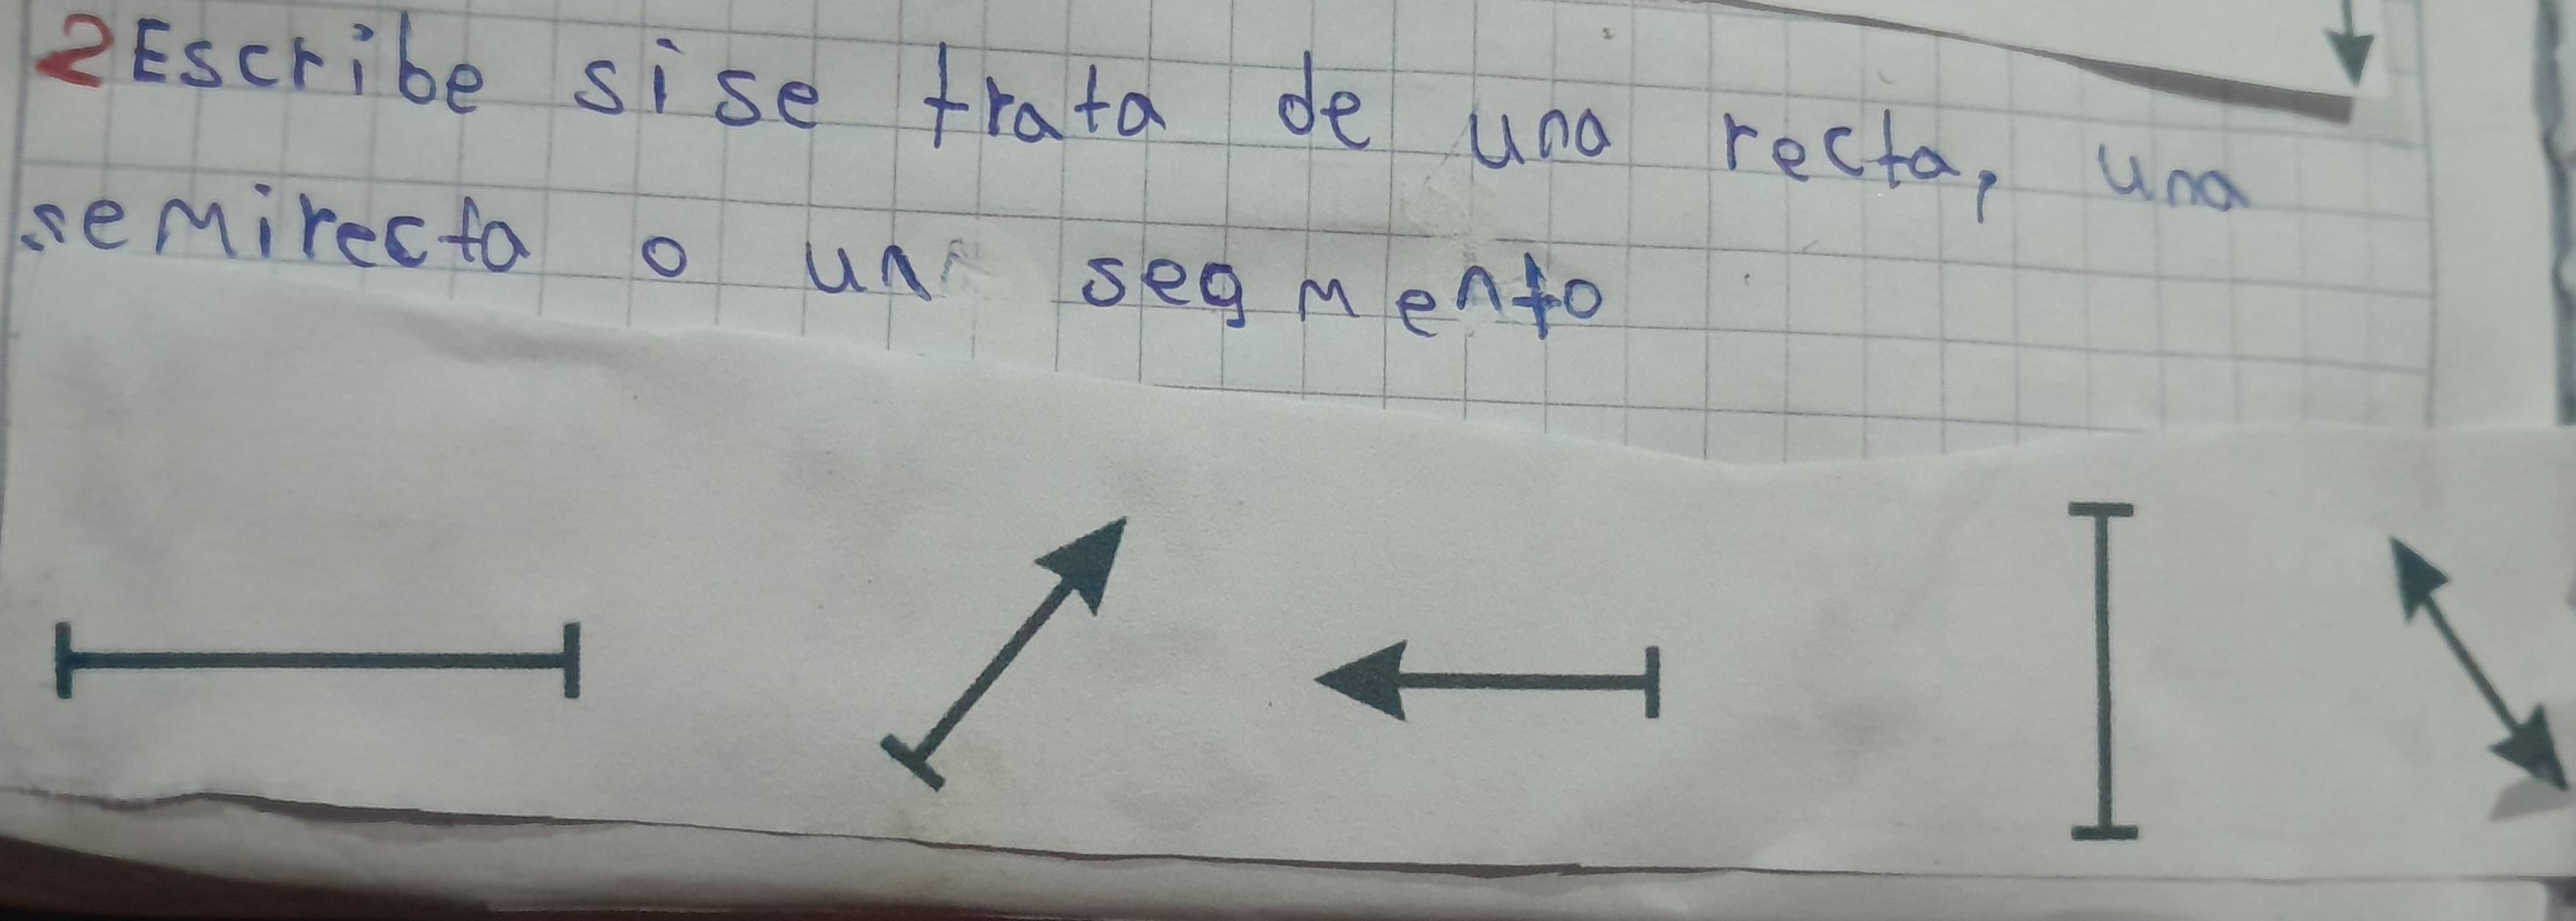 2 Escribe si se trata de una recta, una
semirecta o un segmento